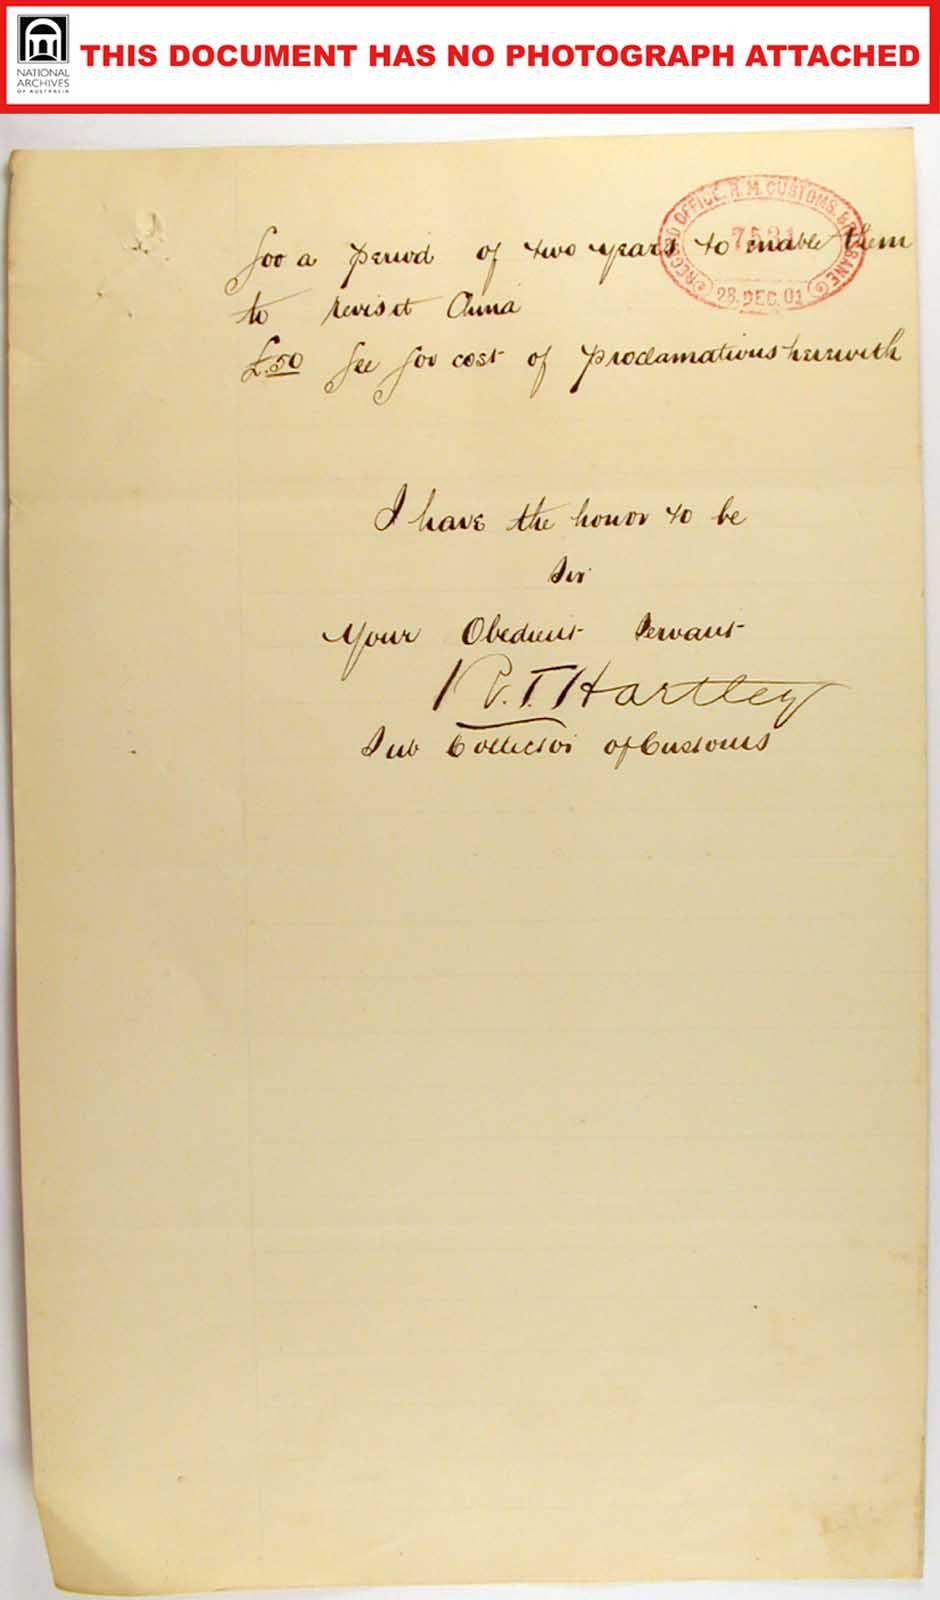 NATIONAL
ARCHIVES
OF AUSTRALIA
THIS DOCUMENT HAS NO PHOTOGRAPH ATTACHED
RECORD OFFICE, H.M. CUSTOMS, BRISBANE
7531
28. DEC. 01
for a period of two years to enable them
to revisit China
£.50 fee for cost of proclamations herewith
I have the honor to be
Sir
Your Obedient Servant
T. Hartley
Sub Collector of Customs